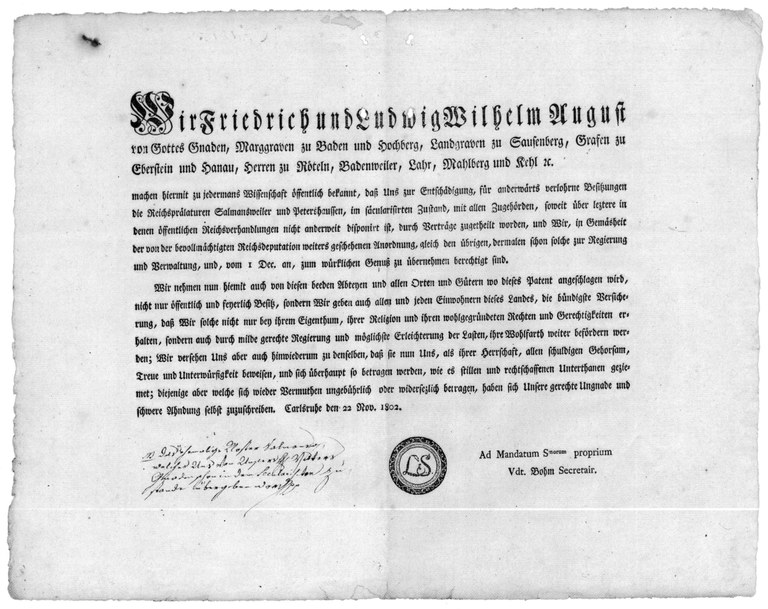 Wir Friedrich und Ludwig Wilhelm August
von Gottes Gnaden, Marggraven zu Baden und Hochberg, Landgraven zu Sausenberg, Grafen zu
Eberstein und Hanau, Herren zu Röteln, Badenweiler, Lahr, Mahlberg und Kehl ꝛc.
machen hiermit zu jedermans Wissenschaft öffentlich bekannt, daß Uns zur Entschädigung, für anderwärts verlohrne Besitzungen
die Reichsprälaturen Salmansweiler und Petershaussen, im säcularisirten Zustand, mit allen Zugehörden, soweit über leztere in
denen öffentlichen Reichsverhandlungen nicht anderweit disponirt ist, durch Verträge zugetheilt worden, und Wir, in Gemäsheit
der von der bevollmächtigten Reichsdeputation weiters geschehenen Anordnung, gleich den übrigen, dermalen schon solche zur Regierung
und Verwaltung, und, vom 1 Dec. an, zum würklichen Genuß zu übernehmen berechtigt sind.
Wir nehmen nun hiemit auch von diesen beeden Abteyen und allen Orten und Gütern wo dieses Patent angeschlagen wird,
nicht nur öffentlich und feyerlich Besitz, sondern Wir geben auch allen und jeden Einwohnern dieses Landes, die bündigste Versiche-
rung, daß Wir solche nicht nur bey ihrem Eigenthum, ihrer Religion und ihren wohlgegründeten Rechten und Gerechtigkeiten er-
halten, sondern auch durch milde gerechte Regierung und möglichste Erleichterung der Lasten, ihre Wohlfarth weiter befördern wer-
den; Wir versehen Uns aber auch hinwiederum zu denselben, daß sie nun Uns, als ihrer Herrschaft, allen schuldigen Gehorsam,
Treue und Unterwürfigkeit beweisen, und sich überhaupt so betragen werden, wie es stillen und rechtschaffenen Unterthanen gezie-
met; diejenige aber welche sich wieder Vermuthen ungebührlich oder widersezlich betragen, haben sich Unsere gerechte Ungnade und
schwere Ahndung selbst zuzuschreiben. Carlsruhe den 22 Nov. 1802.
LS
Ad Mandatum Snorum proprium
Vdt. Bohm Secretair.